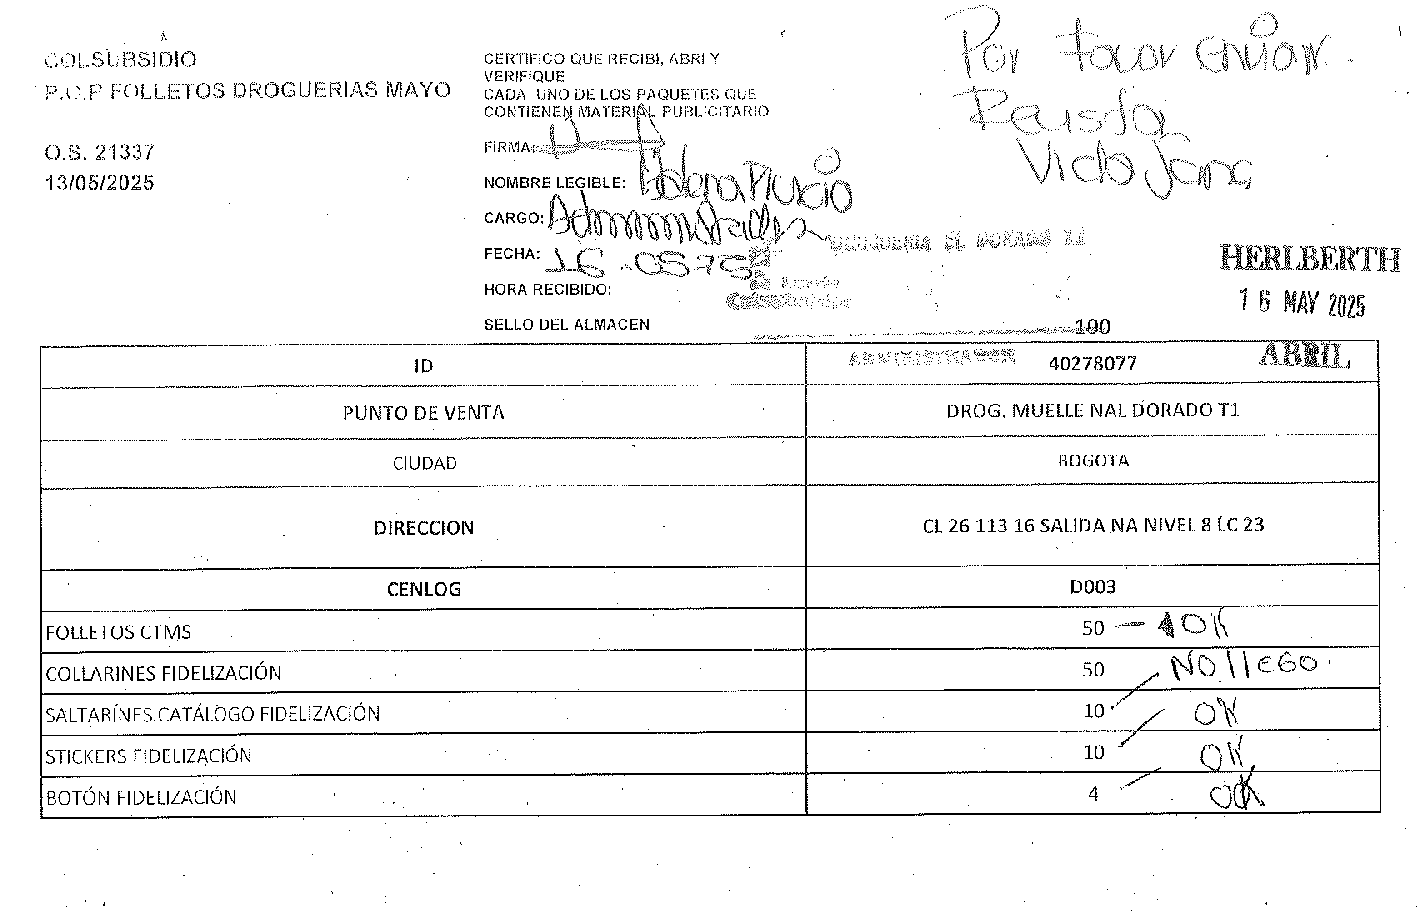 COLSUBSIDIO
P.O.P FOLLETOS DROGUERIAS MAYO
O.S. 21337
13/05/2025
CERTIFICO QUE RECIBI, ABRI Y
VERIFIQUE
CADA UNO DE LOS PAQUETES QUE
CONTIENEN MATERIAL PUBLICITARIO
FIRMA:
NOMBRE LEGIBLE:
CARGO:
FECHA: 16
HORA RECIBIDO:
SELLO DEL ALMACEN
Por favor enviar
HERLBERTH
16 MAY 2025
ABRIL
100
ADMINISTRADOR
ID 40278077
PUNTO DE VENTA DROG. MUELLE NAL DORADO T1
CIUDAD BOGOTA
DIRECCION CL 26 113 16 SALIDA NA NIVEL 8 LC 23
CENLOG D003
FOLLETOS CTMS 50 OK
COLLARINES FIDELIZACIÓN 50 NO llEGO
SALTARÍNES CATÁLOGO FIDELIZACIÓN 10 OK
STICKERS FIDELIZACIÓN 10 OK
BOTÓN FIDELIZACIÓN 4 OK